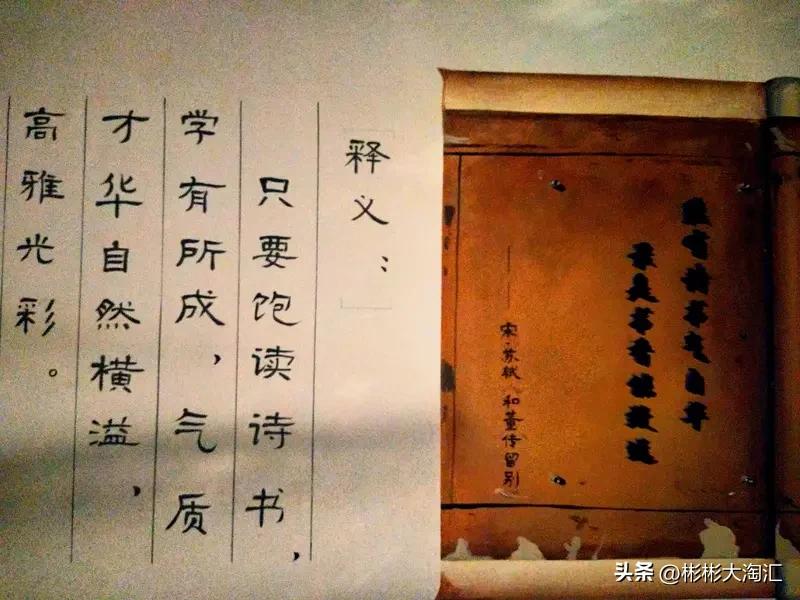 腹有诗书气自华
最是书香能致远
——宋·苏轼《和董传留别
释义：
只要饱读诗书，
学有所成，气质
才华自然横溢，
高雅光彩。
头条 @彬彬大淘汇